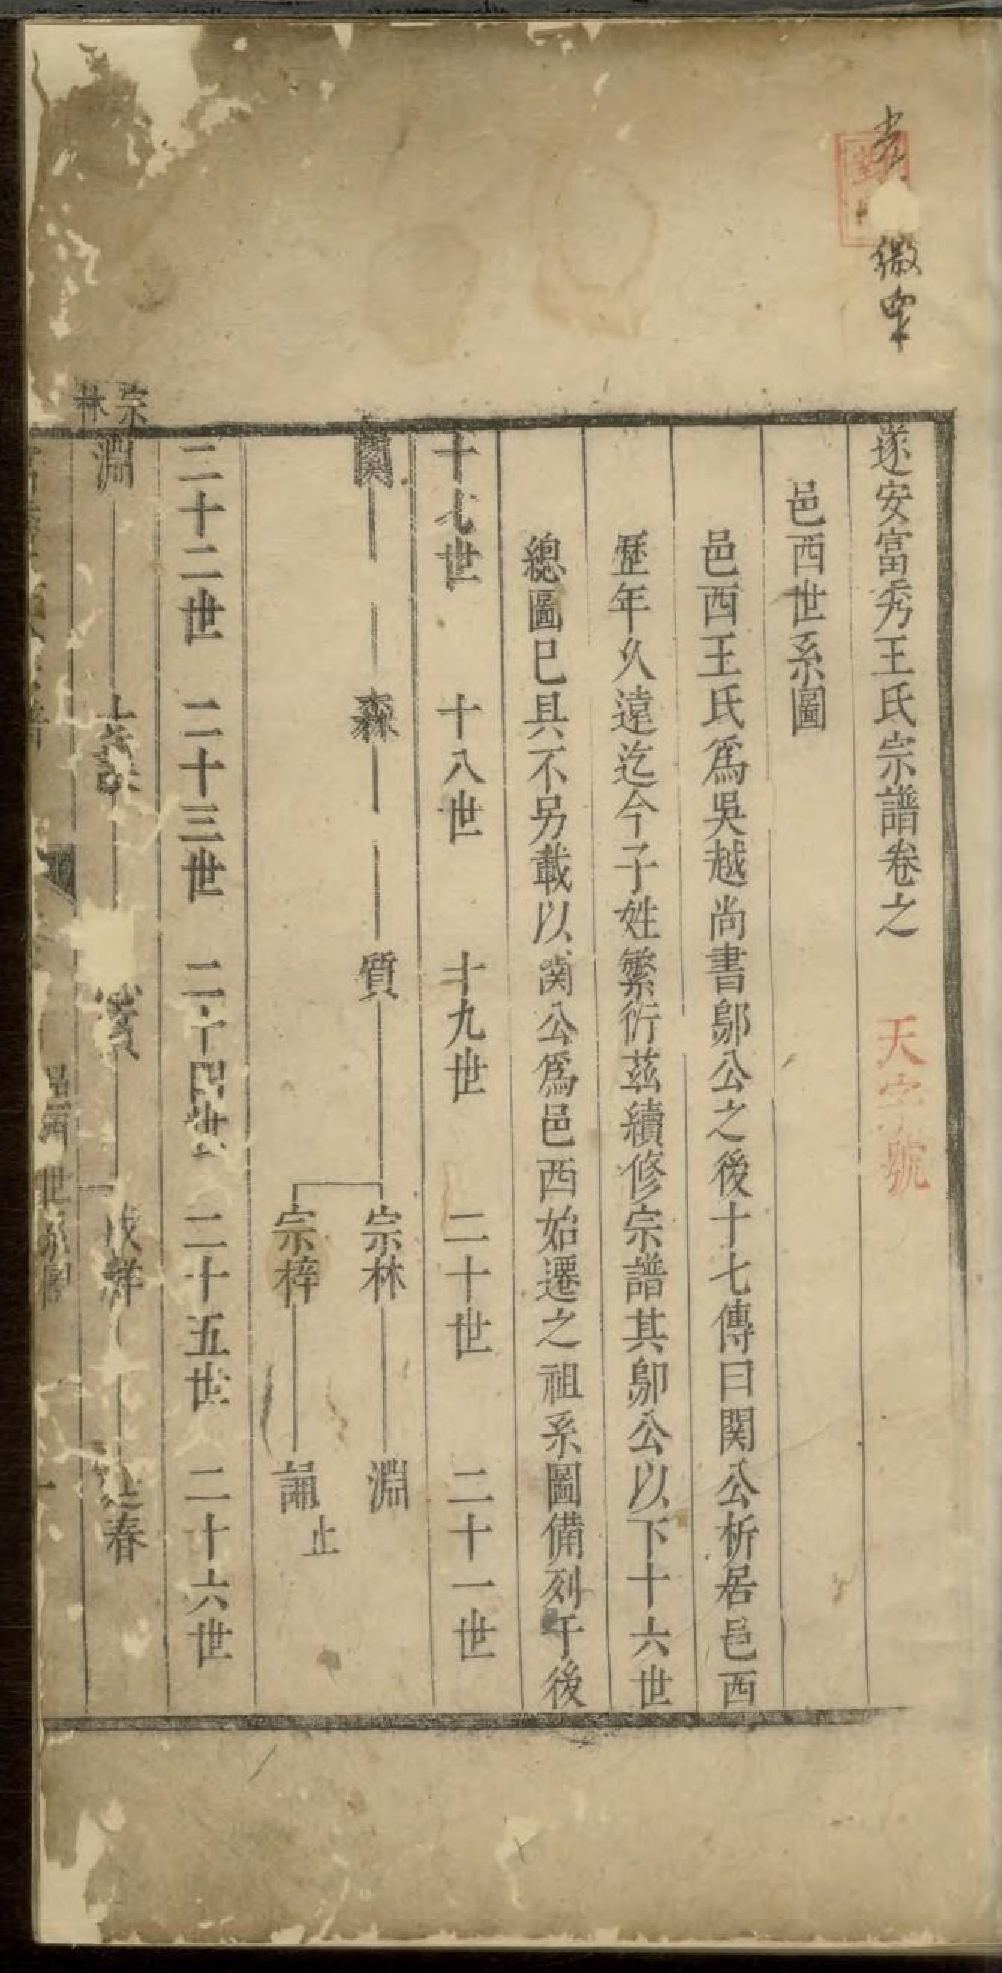 遂安富秀王氏宗譜卷之 天字號
邑西世系圖
邑西王氏爲吳越尚書鄔公之後十七傳曰関公析居邑西
歷年久遠迄今子姓繁衍茲續修宗譜其鄔公以下十六世
總圖已具不另載以関公爲邑西始遷之祖系圖備列于後
十七世 十八世 十九世 二十世 二十一世
関 森 質 宗林 淵
宗梓 誧 止
二十二世 二十三世 二十四世 二十五世 二十六世
宗林
淵 春